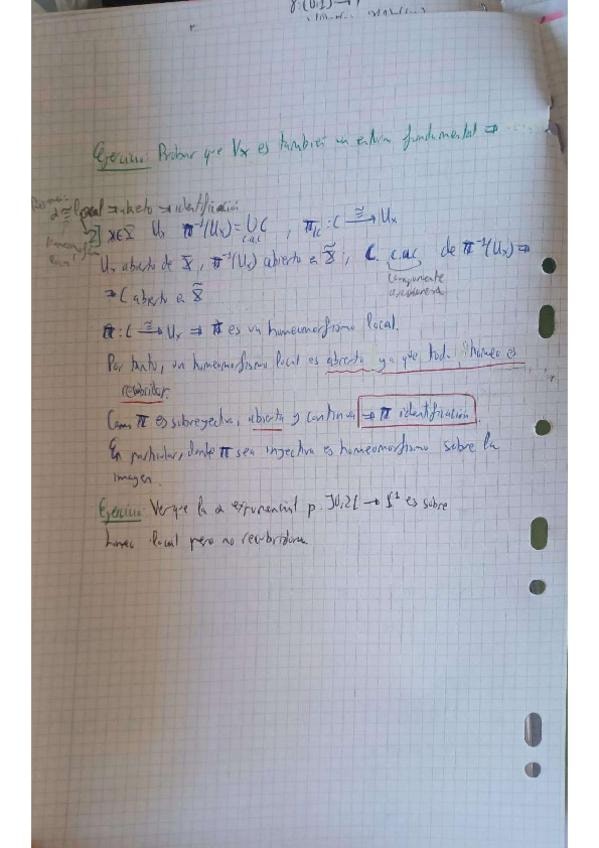 γ:(0,1) →
Ejercicio: Probar que Vx es también un entorno fundamental ⇒
≅ local → abierto → identificación
2] x∈X Ux π⁻¹(Ux) = ∪C , π|c : C ≅→ Ux
c.a.c
Ux abierto de X, π⁻¹(Ux) abierto en X̃, C c.a.c de π⁻¹(Ux) ⇒
componente
⇒ C abierto en X̃
π : C ≅→ Ux ⇒ π es un homeomorfismo local.
Por tanto, un homeomorfismo local es abierto ya que todo homeo es
recubridor.
Como π es sobreyectiva, abierta y continua ⇒ π identificación
En particular, donde π sea inyectiva es homeomorfismo sobre la
imagen.
Ejercicio: Ver que la exponencial p: ]0,2[ → S¹ es sobre
homeo local pero no recubridora